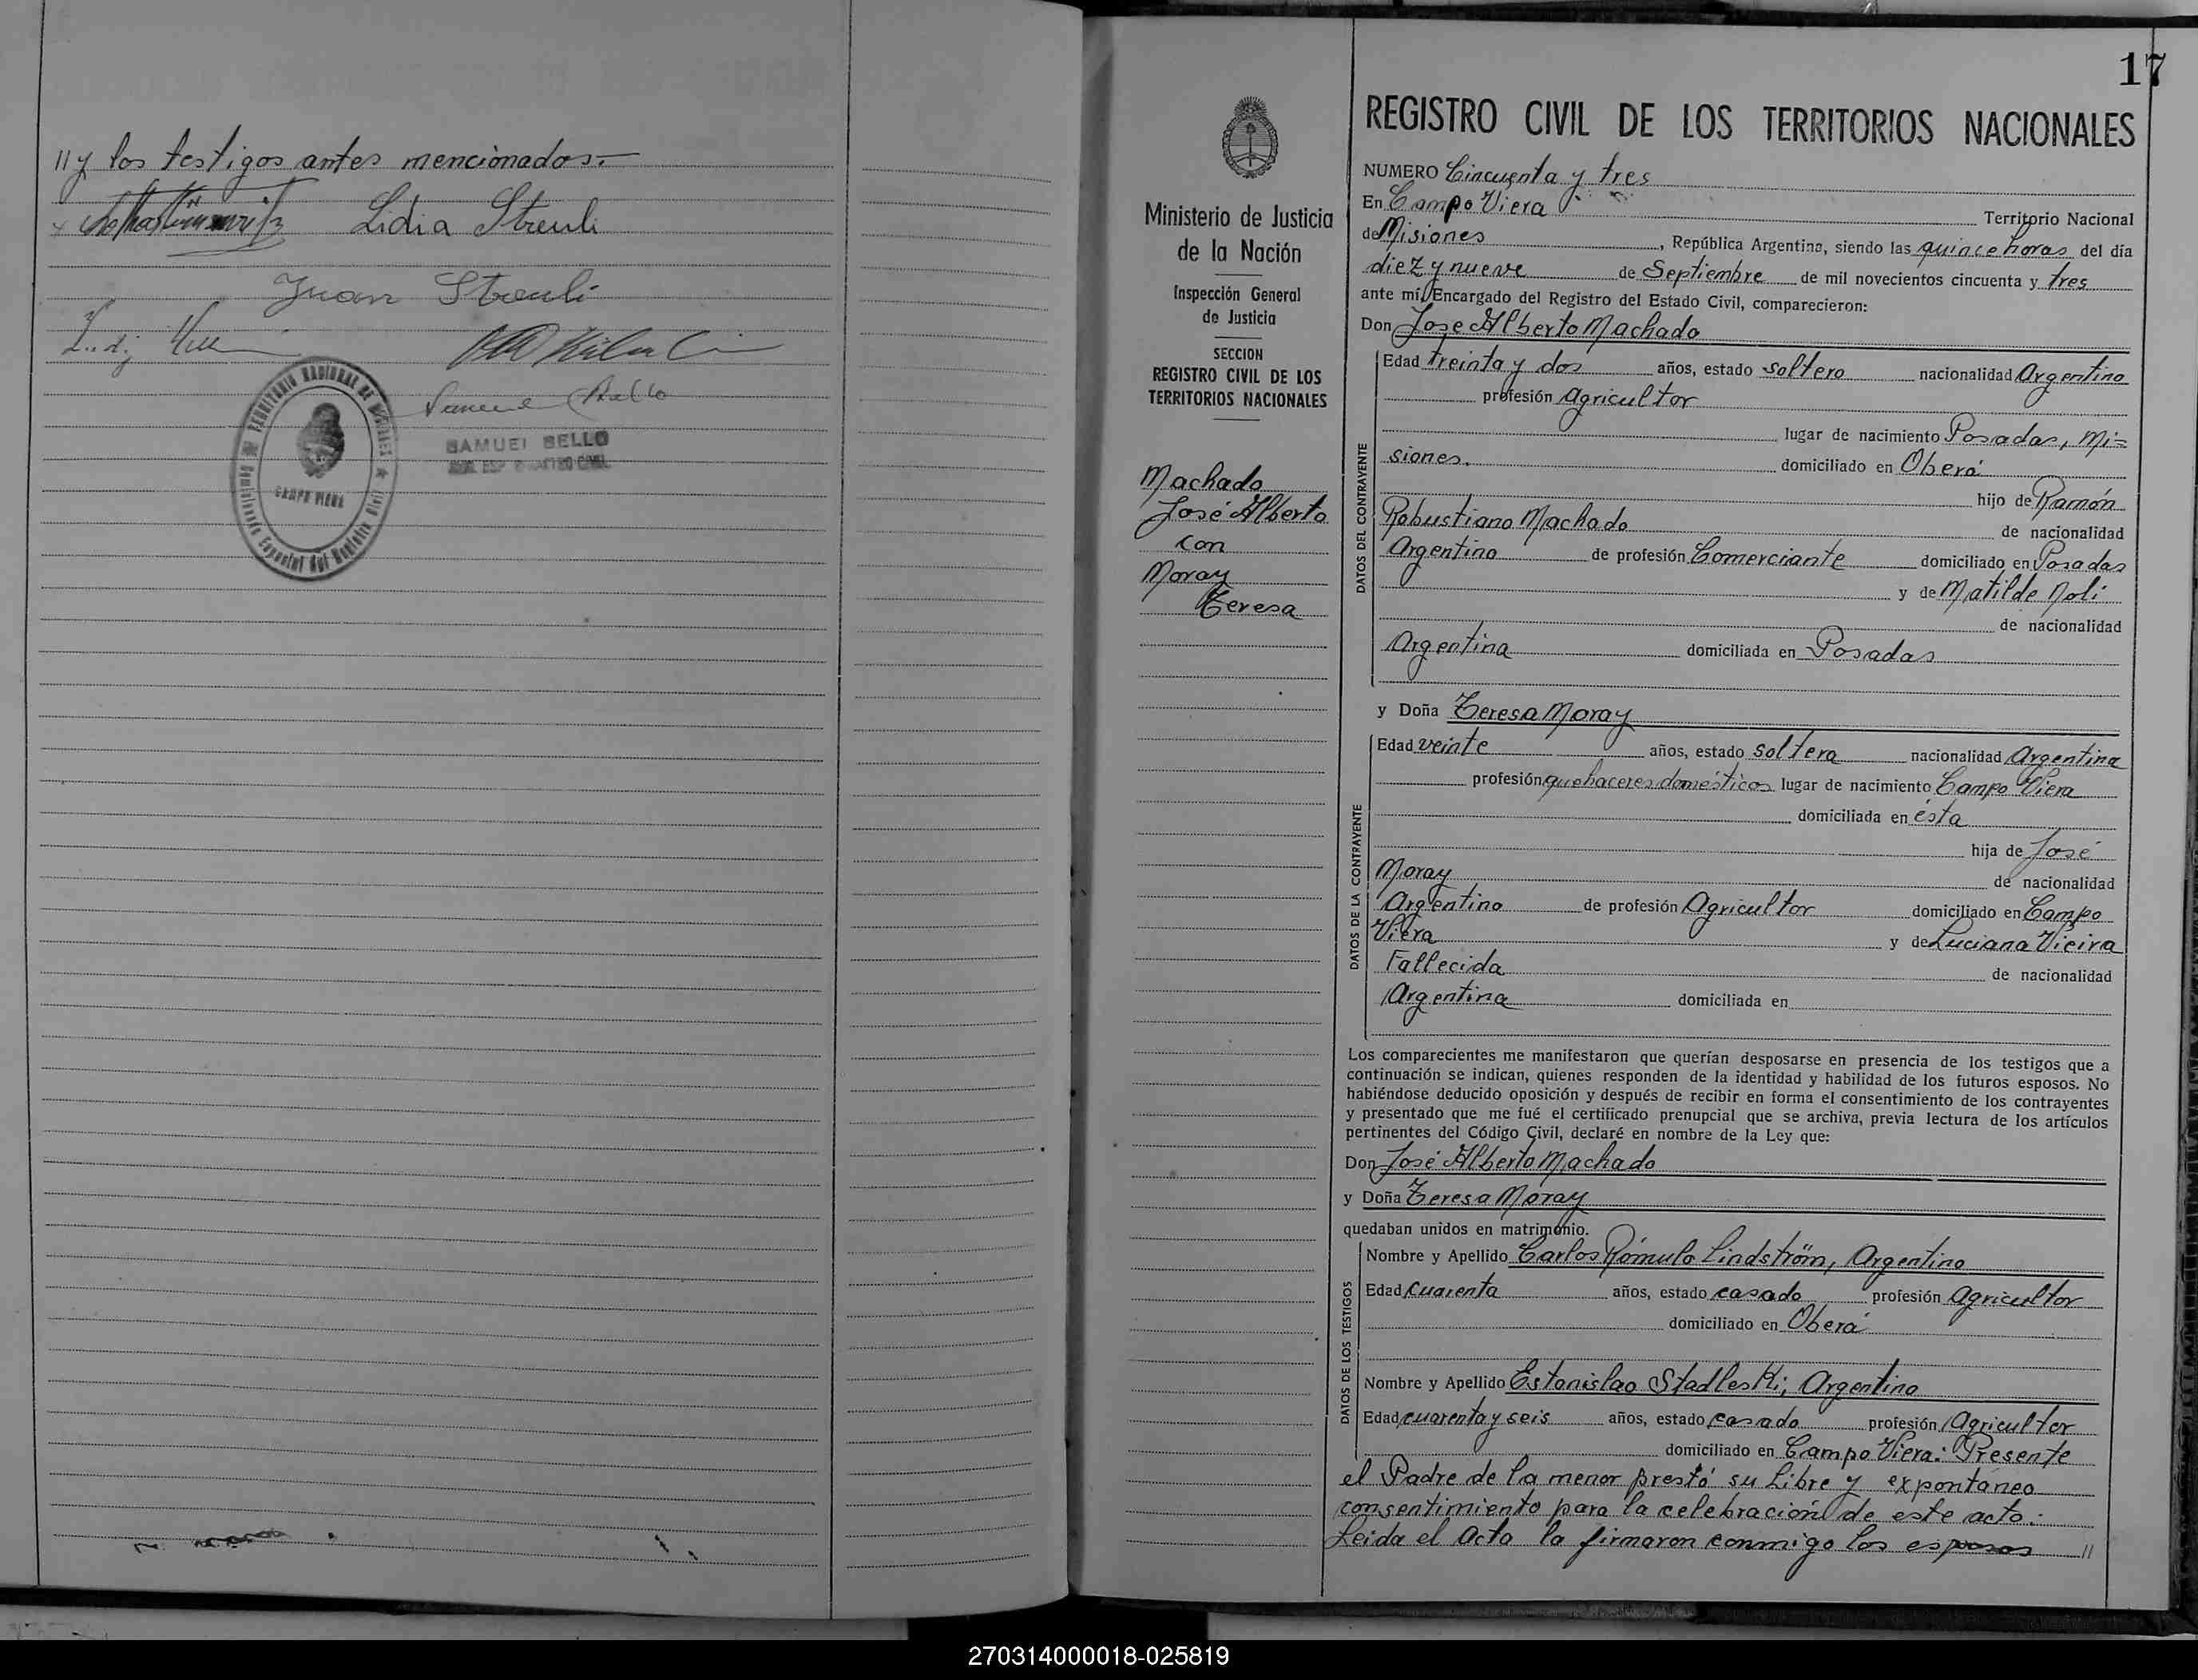 // y los testigos antes mencionados.-
Lidia Streuli
Juan Streuli
SAMUEL BELLO
CAMPO VIERA
17
REGISTRO CIVIL DE LOS TERRITORIOS NACIONALES
Ministerio de Justicia
de la Nación
Inspección General
de Justicia
SECCION
REGISTRO CIVIL DE LOS
TERRITORIOS NACIONALES
Machado
José Alberto
con
Moray
Teresa
NUMERO Cincuenta y tres
En Campo Viera Territorio Nacional
de Misiones, República Argentina, siendo las quince horas del día
diez y nueve de Septiembre de mil novecientos cincuenta y tres
ante mí, Encargado del Registro del Estado Civil, comparecieron:
Don Jose Alberto Machado
DATOS DEL CONTRAYENTE
Edad treinta y dos años, estado soltero nacionalidad Argentino
profesión agricultor
lugar de nacimiento Posadas, Mi=
siones. domiciliado en Oberá
hijo de Ramón
Robustiano Machado de nacionalidad
Argentino de profesión Comerciante domiciliado en Posadas
y de Matilde Noli
de nacionalidad
Argentina domiciliada en Posadas
y Doña Teresa Moray
DATOS DE LA CONTRAYENTE
Edad veinte años, estado soltera nacionalidad Argentina
profesión quehaceres domésticos lugar de nacimiento Campo Viera
domiciliada en ésta
hija de José
Moray de nacionalidad
Argentino de profesión Agricultor domiciliado en Campo
Viera y de Luciana Vieira
Fallecida de nacionalidad
Argentina domiciliada en
Los comparecientes me manifestaron que querían desposarse en presencia de los testigos que a
continuación se indican, quienes responden de la identidad y habilidad de los futuros esposos. No
habiéndose deducido oposición y después de recibir en forma el consentimiento de los contrayentes
y presentado que me fué el certificado prenupcial que se archiva, previa lectura de los artículos
pertinentes del Código Civil, declaré en nombre de la Ley que:
Don José Alberto Machado
y Doña Teresa Moray
quedaban unidos en matrimonio.
DATOS DE LOS TESTIGOS
Nombre y Apellido Carlos Rómulo Lindström, Argentino
Edad cuarenta años, estado casado profesión Agricultor
domiciliado en Oberá
Nombre y Apellido Estanislao Stadleski, Argentino
Edad cuarenta y seis años, estado casado profesión Agricultor
domiciliado en Campo Viera: Presente
el Padre de la menor prestó su libre y expontáneo
consentimiento para la celebración de este acto.
Leida el acta la firmaron conmigo los esposos //
270314000018-025819